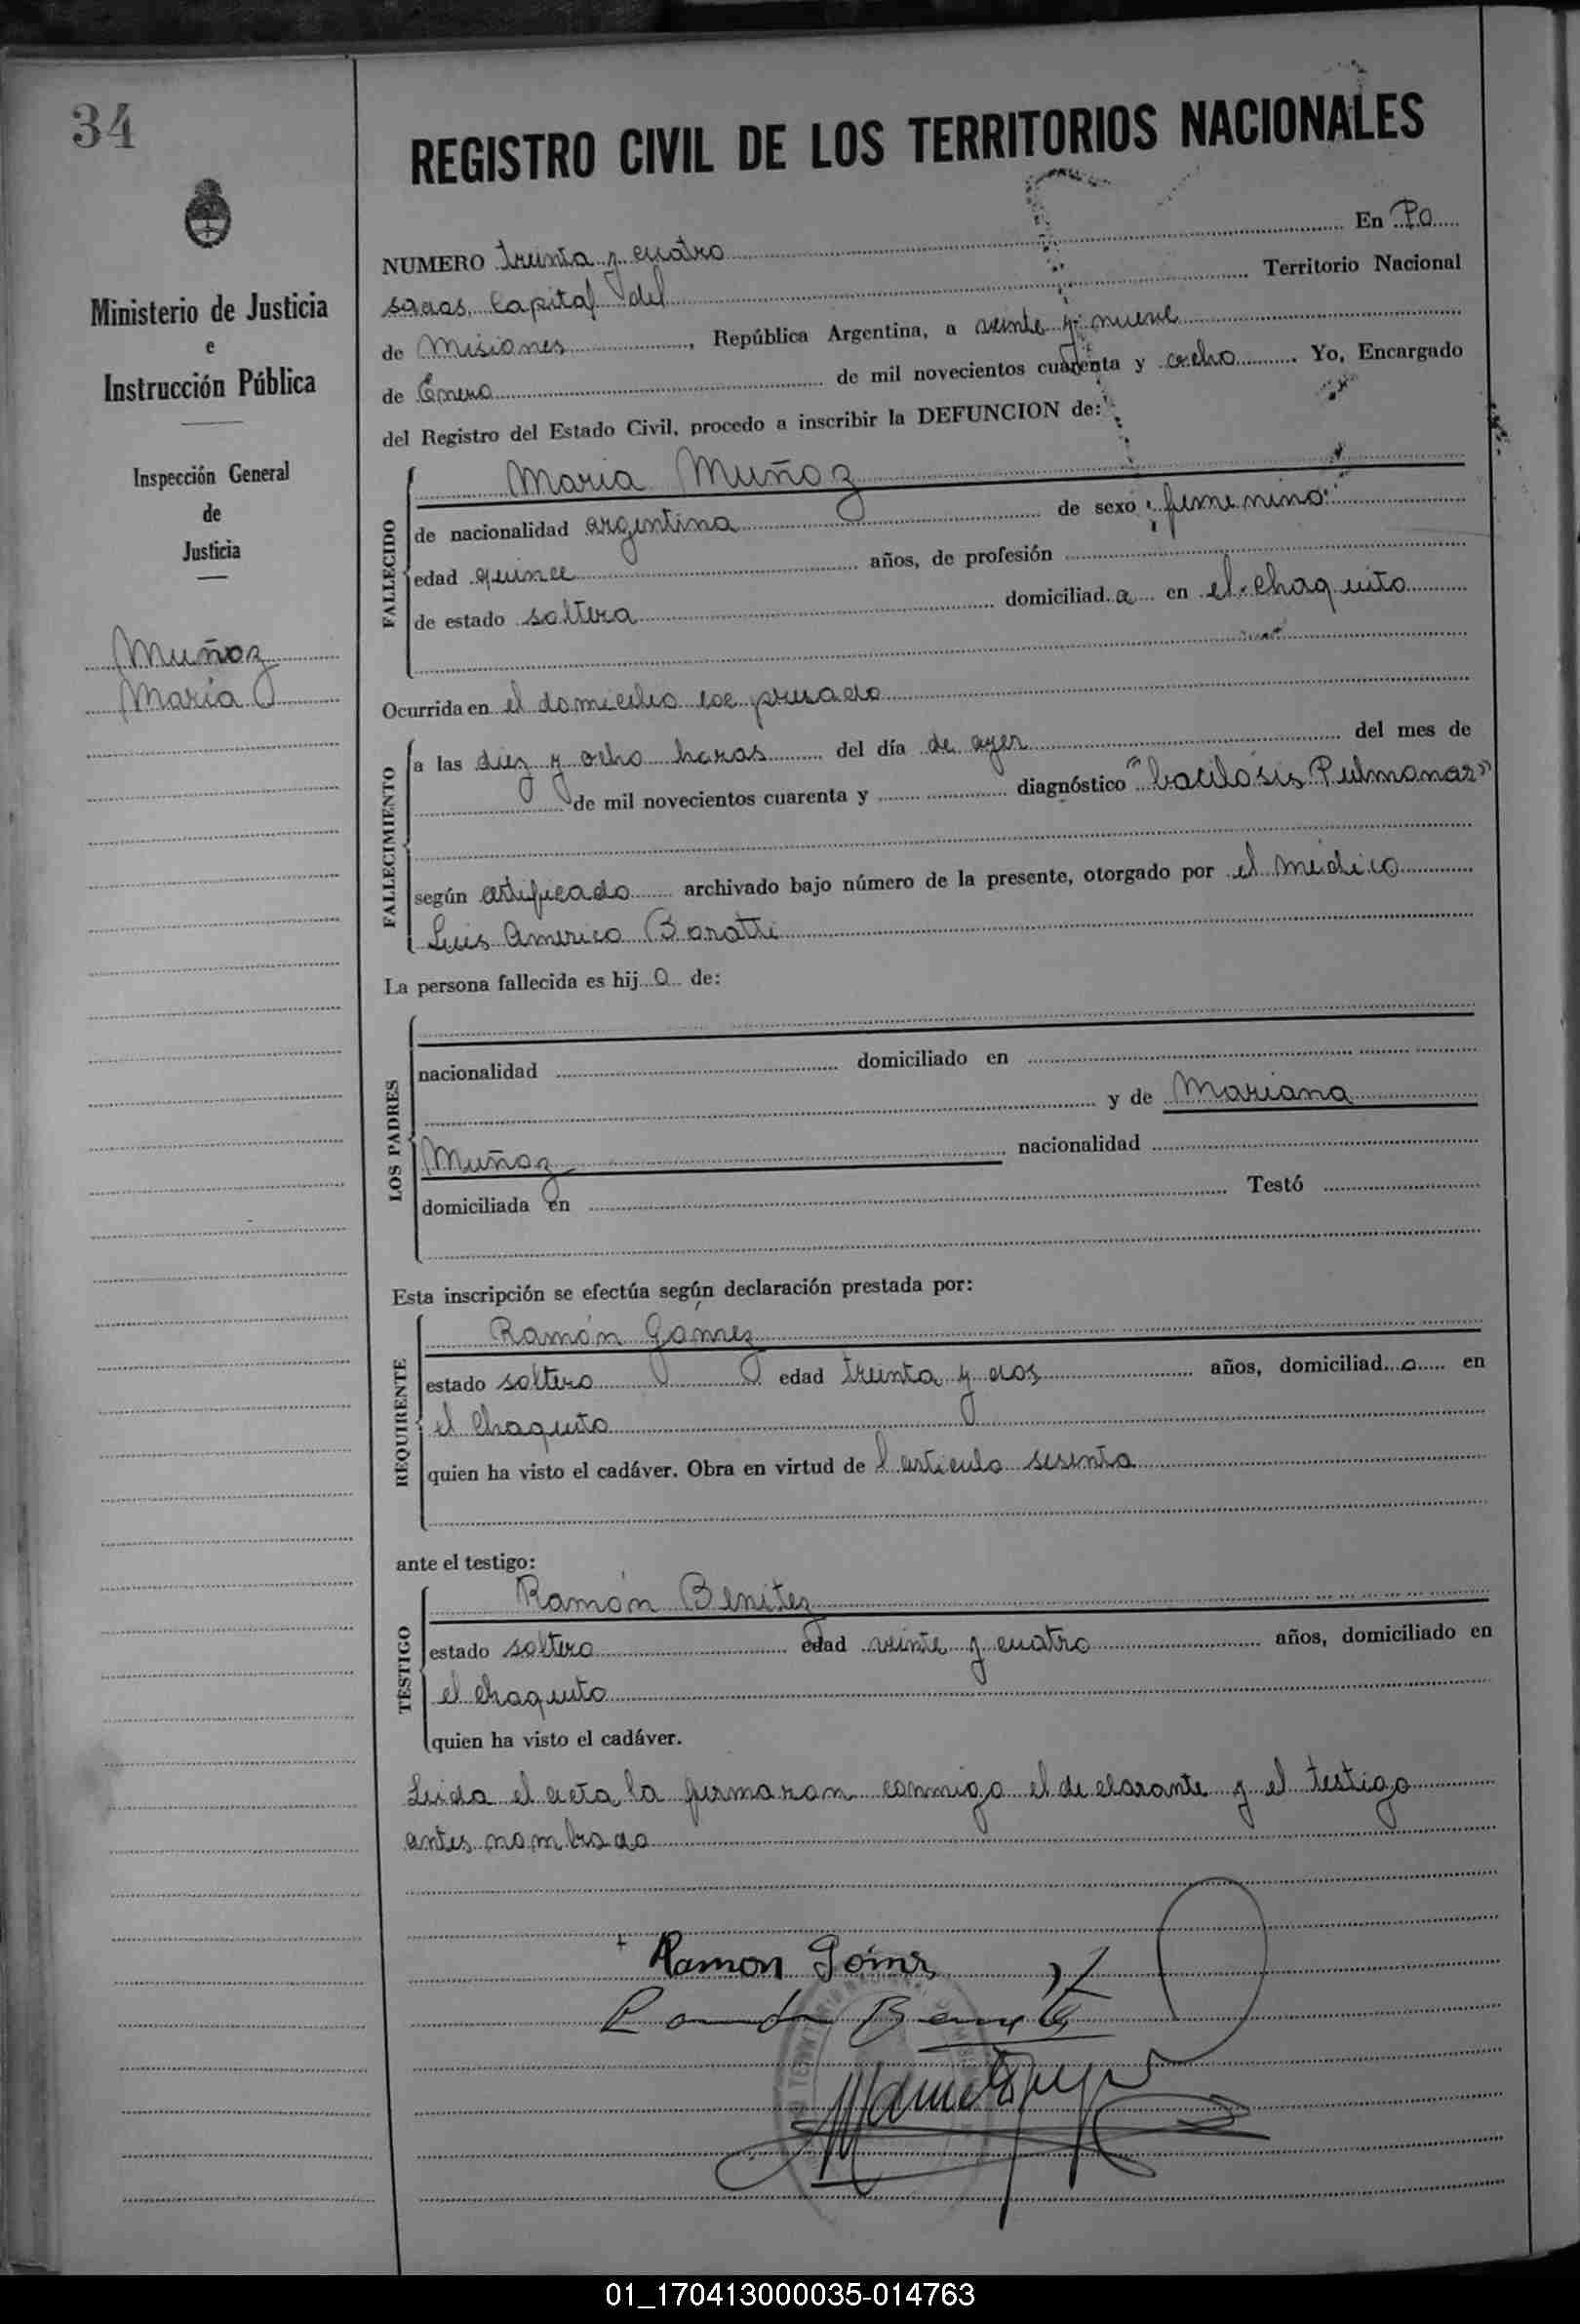 34
Ministerio de Justicia
e
Instrucción Pública
Inspección General
de
Justicia
Muñoz
María
REGISTRO CIVIL DE LOS TERRITORIOS NACIONALES
NUMERO treinta y cuatro En Po
sadas, Capital del Territorio Nacional
de Misiones, República Argentina, a veinte y nueve
de Enero de mil novecientos cuarenta y ocho. Yo, Encargado
del Registro del Estado Civil, procedo a inscribir la DEFUNCION de:
FALLECIDO
Maria Muñoz
de nacionalidad argentina de sexo femenino
edad quince años, de profesión
de estado soltera domiciliad a en el Chaquito
Ocurrida en el domicilio expresado
FALLECIMIENTO
a las diez y ocho horas del día de ayer del mes de
de mil novecientos cuarenta y diagnóstico "bacilosis Pulmonar"
según certificado archivado bajo número de la presente, otorgado por el médico
Luis Americo Boratti
La persona fallecida es hij a de:
LOS PADRES
nacionalidad domiciliado en
y de Mariana
Muñoz nacionalidad
domiciliada en Testó
Esta inscripción se efectúa según declaración prestada por:
REQUIRENTE
Ramón Gómez
estado soltero edad treinta y dos años, domiciliad o en
el Chaquito
quien ha visto el cadáver. Obra en virtud de l articulo sesenta
ante el testigo:
TESTIGO
Ramón Benitez
estado soltero edad veinte y cuatro años, domiciliado en
el chaquito
quien ha visto el cadáver.
Leida el acta la firmaron conmigo el declarante y el testigo
antes nombrado
Ramon Gómz
01_170413000035-014763